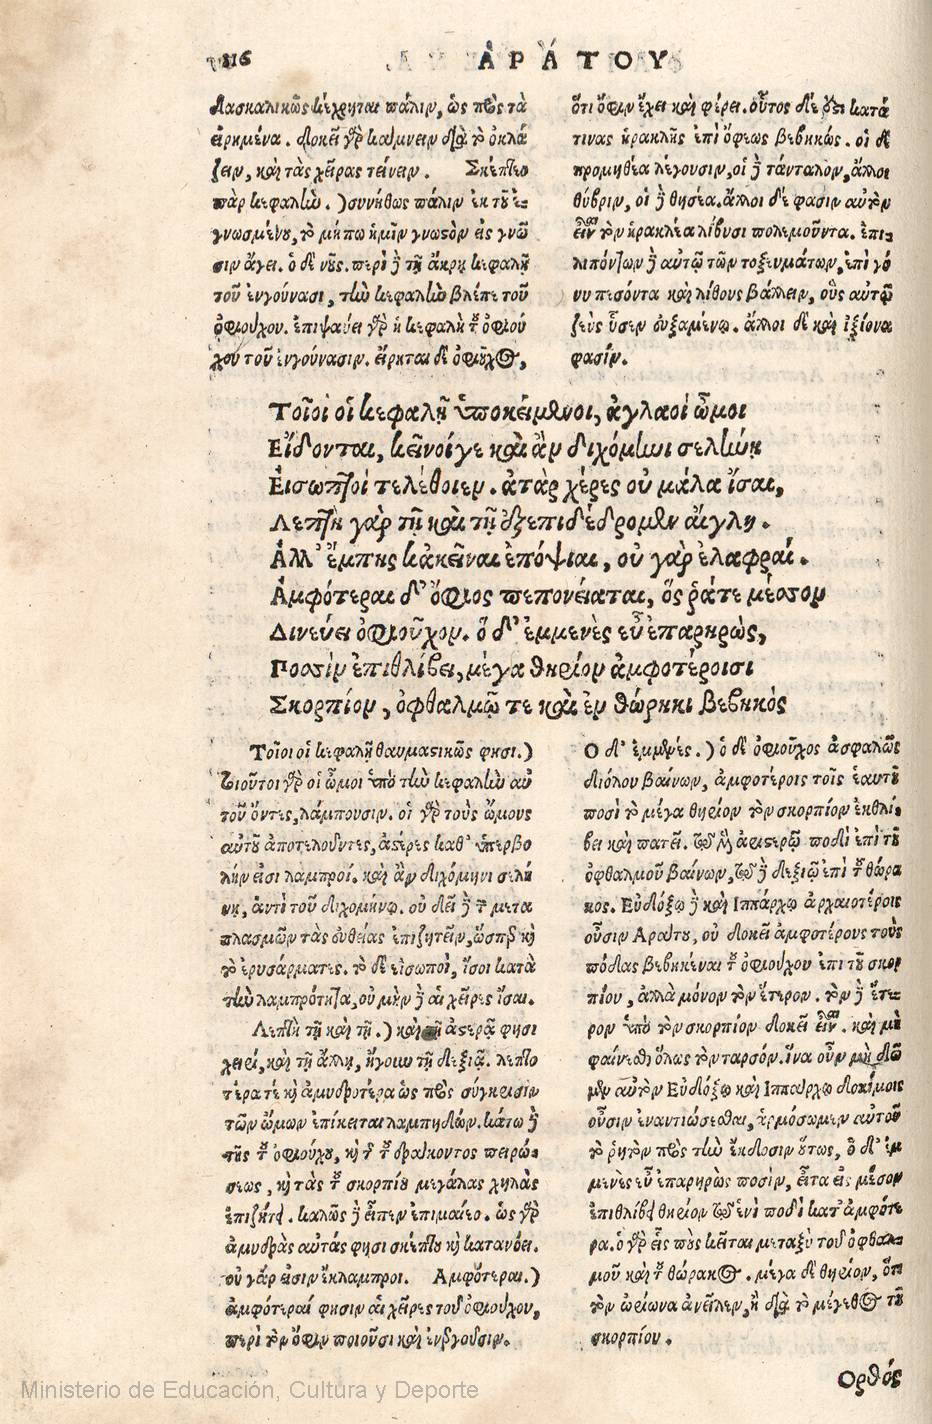 116
ἈΡΆΤΟΥ
δασκαλικῶς κέχρηται πάλιν, ὡς πρὸς τὰ
εἰρημένα. δοκεῖ γὸ κάμνειν διὰ τὸ ὀκλά
ζειν, καὶ τὰς χεῖρας τείνειν. Σκέπτεο
πὰρ κεφαλῇ.) συνήθως πάλιν ἐκ τοῦ ἐ-
γνωσμένου, τὸ μήπω ἡμῖν γνωστὸν εἰς γνῶ
σιν ἄγει. ὁ δὲ νοῦς. περὶ δὲ τῇ ἄκρῃ κεφαλῇ
τοῦ ἐνγούνασι, τὴν κεφαλὴν βλέπε τοῦ
ὀφιούχου. ἐπιψαύει γὰρ ἡ κεφαλὴ τοῦ ὀφιού
χου τοῦ ἐνγούνασιν. εἴρηται δὲ ὀφιοῦχος,
ὅτι ὄφιν ἔχει καὶ φέρει. οὗτος δέ ἐστι κατά
τινας ἡρακλῆς ἐπὶ ὄφεως βεβηκώς. οἱ δὲ
προμηθέα λέγουσιν, οἱ δὲ τάνταλον, ἄλλοι
θύβριν, οἱ δὲ θησέα. ἄλλοι δέ φασιν αὐτὸν
εἶναι τὸν ἡρακλέα λίβυσι πολεμοῦντα. ἐπι-
λιπόντων δὲ αὐτῷ τῶν τοξευμάτων, ἐπὶ γό
νυ πεσόντα καὶ λίθους βάλλειν, οὓς αὐτῷ
ζεὺς ὗσεν εὐξαμένῳ. ἄλλοι δὲ καὶ ἰξίονα
φασίν.
Τοῖοί οἱ κεφαλῇ ὑποκείμενοι, ἀγλαοὶ ὦμοι
Εἴδονται, κεῖνοί γε καὶ ἂν διχόμηνι σελήνῃ
Εἰσωποὶ τελέθοιεν. ἀτὰρ χέρες οὐ μάλα ἶσαι,
Λεπτὴ γὰρ τῇ καὶ τῇ ἐπιδέδρομεν αἴγλη.
Ἀλλ' ἔμπης κἀκεῖναι ἐπόψιαι, οὐ γὰρ ἐλαφραί.
Ἀμφότεραι δ' ὄφιος πεπονείαται, ὅς ῥά τε μέσσον
Δινεύει ὀφιοῦχον. ὅ δ' ἐμμενὲς εὖ ἐπαρηρὼς,
Ποσσὶν ἐπιθλίβει, μέγα θηρίον ἀμφοτέροισι
Σκορπίον, ὀφθαλμῷ τε καὶ ἐν θώρηκι βεβηκὸς
Τοῖοι οἱ κεφαλῇ θαυμαστικῶς φησι.)
τοιοῦτοι γὰρ οἱ ὦμοι ὑπὸ τὴν κεφαλὴν αὐ
τοῦ ὄντες, λάμπουσιν. οἱ γὰρ τοὺς ὤμους
αὐτοῦ ἀποτελοῦντες, ἀστέρες καθ' ὑπερβο
λήν εἰσι λαμπροί. καὶ ἂν διχόμηνι σελή
νῃ, ἀντὶ τοῦ διχομήνῳ. οὐ δεῖ δὲ τῶν μετα
πλασμῶν τὰς εὐθείας ἐπιζητεῖν, ὥσπερ καὶ
τὸ ἐρυσάρματες. τὸ δὲ εἰσωποὶ, ἴσοι κατὰ
τὴν λαμπρότητα, οὐ μὴν δὲ αἱ χεῖρες ἴσαι.
Λεπτὴ τῇ καὶ τῇ.) καὶ τῇ ἀριστερᾷ φησι
χειρὶ, καὶ τῇ ἄλλῃ, ἤγουν τῇ δεξιᾷ. λεπτο
τέρα τέ καὶ ἀμυδροτέρα ὡς πρὸς σύγκρισιν
τῶν ὤμων ἐπίκειται λαμπηδών. κάτω δὲ
τῆς τοῦ ὀφιούχου, καὶ τ τοῦ δράκοντος πειρώ-
σεως, καὶ τὰς τοῦ σκορπίου μεγάλας χηλὰς
ἐπιζήτει. καλῶς δὲ εἶπεν ἐπιμαίεο. ὡς γὰρ
ἀμυδρὰς αὐτάς φησι σκέπτου καὶ κατανόει.
οὐ γάρ εἰσιν ἔκλαμπροι. Ἀμφότεραι.)
ἀμφότεραί φησιν αἱ χεῖρες τοῦ ὀφιούχου,
περὶ τὸν ὄφιν ποιοῦσι καὶ ἐνεργοῦσιν.
Ο δ' ἐμμενές.) ὁ δὲ ὀφιοῦχος ἀσφαλῶς
διόλου βαίνων, ἀμφοτέροις τοῖς ἑαυτοῦ
ποσὶ τὸ μέγα θηρίον τὸν σκορπίον ἐκθλί-
βει καὶ πατεῖ. τῷ μὲν ἀριστερῷ ποδὶ ἐπὶ τοῦ
ὀφθαλμοῦ βαίνων, τῷ δὲ δεξιῷ ἐπὶ τοῦ θώρα
κος. Εὐδόξῳ δὲ καὶ Ιππάρχῳ ἀρχαιοτέροις
οὖσιν Αράτου, οὐ δοκεῖ ἀμφοτέρους τοὺς
πόδας βεβηκέναι τοῦ ὀφιούχου ἐπὶ τοῦ σκορ
πίου, ἀλλὰ μόνον τὸν ἕτερον. τὸν δὲ ἕτε-
ρον ὑπὸ τὸν σκορπίον δοκεῖ εἶναι. καὶ μὴ
φαίνεσθαι ὅλως τὸν ταρσόν. ἵνα οὖν μὴ δῶ
μεν αὐτὸν Εὐδόξῳ καὶ Ιππάρχῳ δοκίμοις
οὖσιν ἐναντιώσεσθαι, ἁρμόσωμεν αὐτοῦ
τὸ ῥητὸν πρὸς τὴν ἔκδοσιν οὕτως, ὃ δ' ἐμ
μενὲς εὖ ἐπαρηρὼς ποσὶν, εἶτα εἰς μέσον
ἐπιθλίβει θηρίον τῷ ἑνὶ ποδὶ κατ' ἀμφότε
ρα. ὁ γὰρ εἷς πους κεῖται μεταξὺ τοῦ ὀφθαλ-
μοῦ καὶ τοῦ θώρακος. μέγα δὲ θηρίον, ὅτι
τὸν ὠρίωνα ἀνεῖλεν, ἢ διὰ τὸ μέγεθος τοῦ
σκορπίου.
Ορθός
Ministerio de Educación, Cultura y Deporte